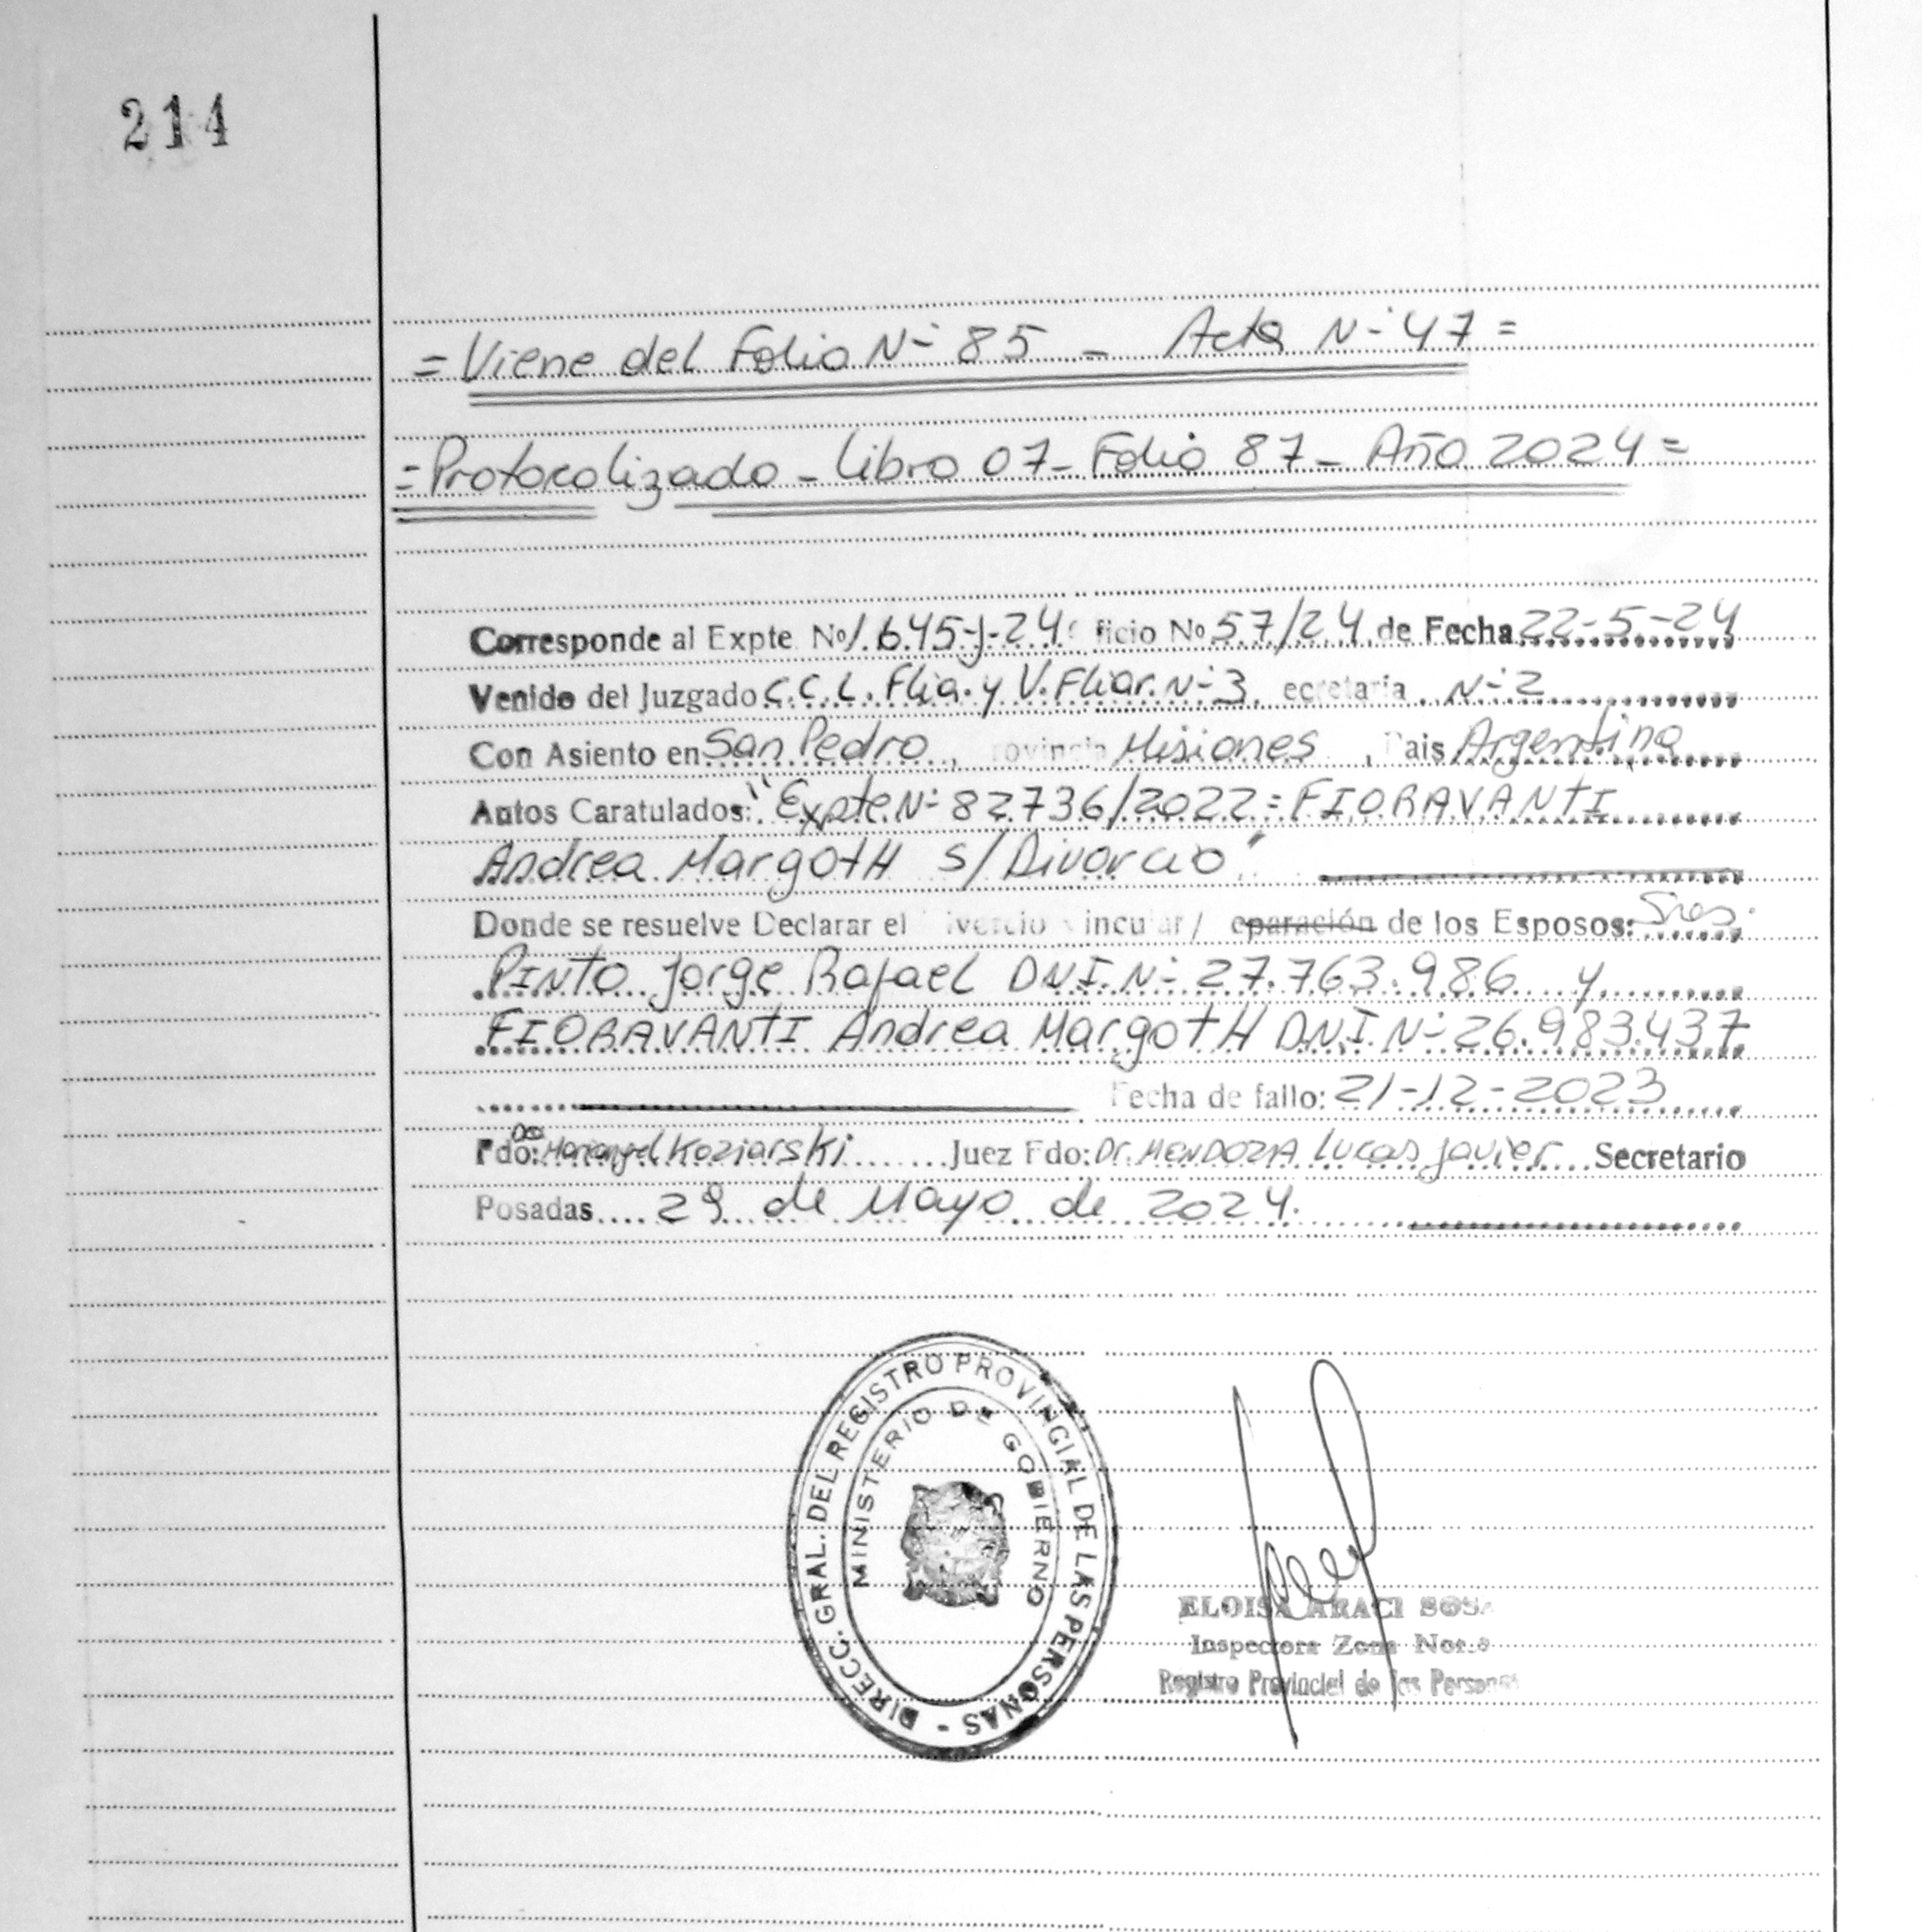 214
= Viene del Folio Nº 85 - Acta Nº 47 =
= Protocolizado - Libro 07 - Folio 87 - Año 2024 =
Corresponde al Expte. Nº 1.645-J-24 ficio Nº 57/24 de Fecha 22-5-24
Venido del Juzgado C.C.L. Flia. y V. Fliar. Nº 3, ecretaria Nº 2
Con Asiento en San Pedro, rovincia Misiones, Pais Argentina
Autos Caratulados: "Expte Nº 82736/2022 = FIORAVANTI
Andrea MargotH s/Divorcio"
Donde se resuelve Declarar el ivorcio vincular / eparación de los Esposos: Sres.
PINTO Jorge Rafael DNI. Nº 27.763.986 y
FIORAVANTI Andrea MargotH D.N.I. Nº 26.983.437
Fecha de fallo: 21-12-2023
Fdo: Dra Mariangel Koziarski Juez Fdo: Dr. MENDOZA Lucas Javier Secretario
Posadas 29 de Mayo de 2024.
DIRECC. GRAL. DEL REGISTRO PROVINCIAL DE LAS PERSONAS -
MINISTERIO DE GOBIERNO
ELOISA ARACI SOSA
Inspectora Zona Norte
Registro Provincial de las Personas